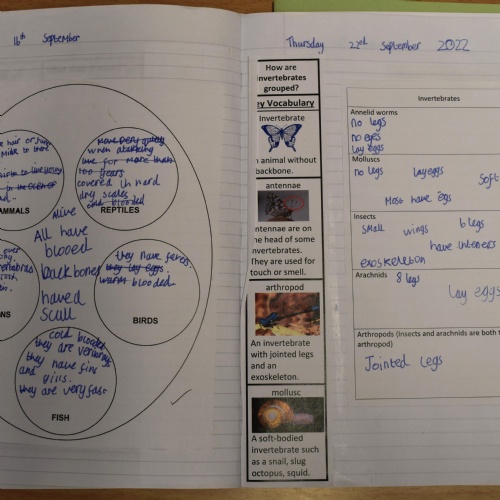 16th September
hair or
milk to
MAMMALS
move very quietly
when attacking
live for more than
100 years
covered in hard
dry scales
cold blooded
REPTILES
Alive
All have
blooed
backbones
haved
Scull
they lay eggs.
warm blooded
BIRDS
cold blooded
they are
they have fins
and gills.
they are very fast
FISH
Thursday 22nd September 2022
How are
invertebrates
grouped?
Key Vocabulary
Invertebrate
An animal without
backbone.
antennae
Antennae are on
the head of some
invertebrates.
They are used for
touch or smell.
arthropod
An invertebrate
with jointed legs
and an
exoskeleton.
mollusc
A soft-bodied
invertebrate such
as a snail, slug
octopus, squid.
Invertebrates
Annelid worms
no legs
no eyes
lay eggs
Molluscs
no legs lay eggs
Soft
Most have
Insects
small wings 6 legs
have
exoskeleton
Arachnids 8 legs
lay eggs
Arthropods (Insects and arachnids are both
arthropod)
Jointed Legs